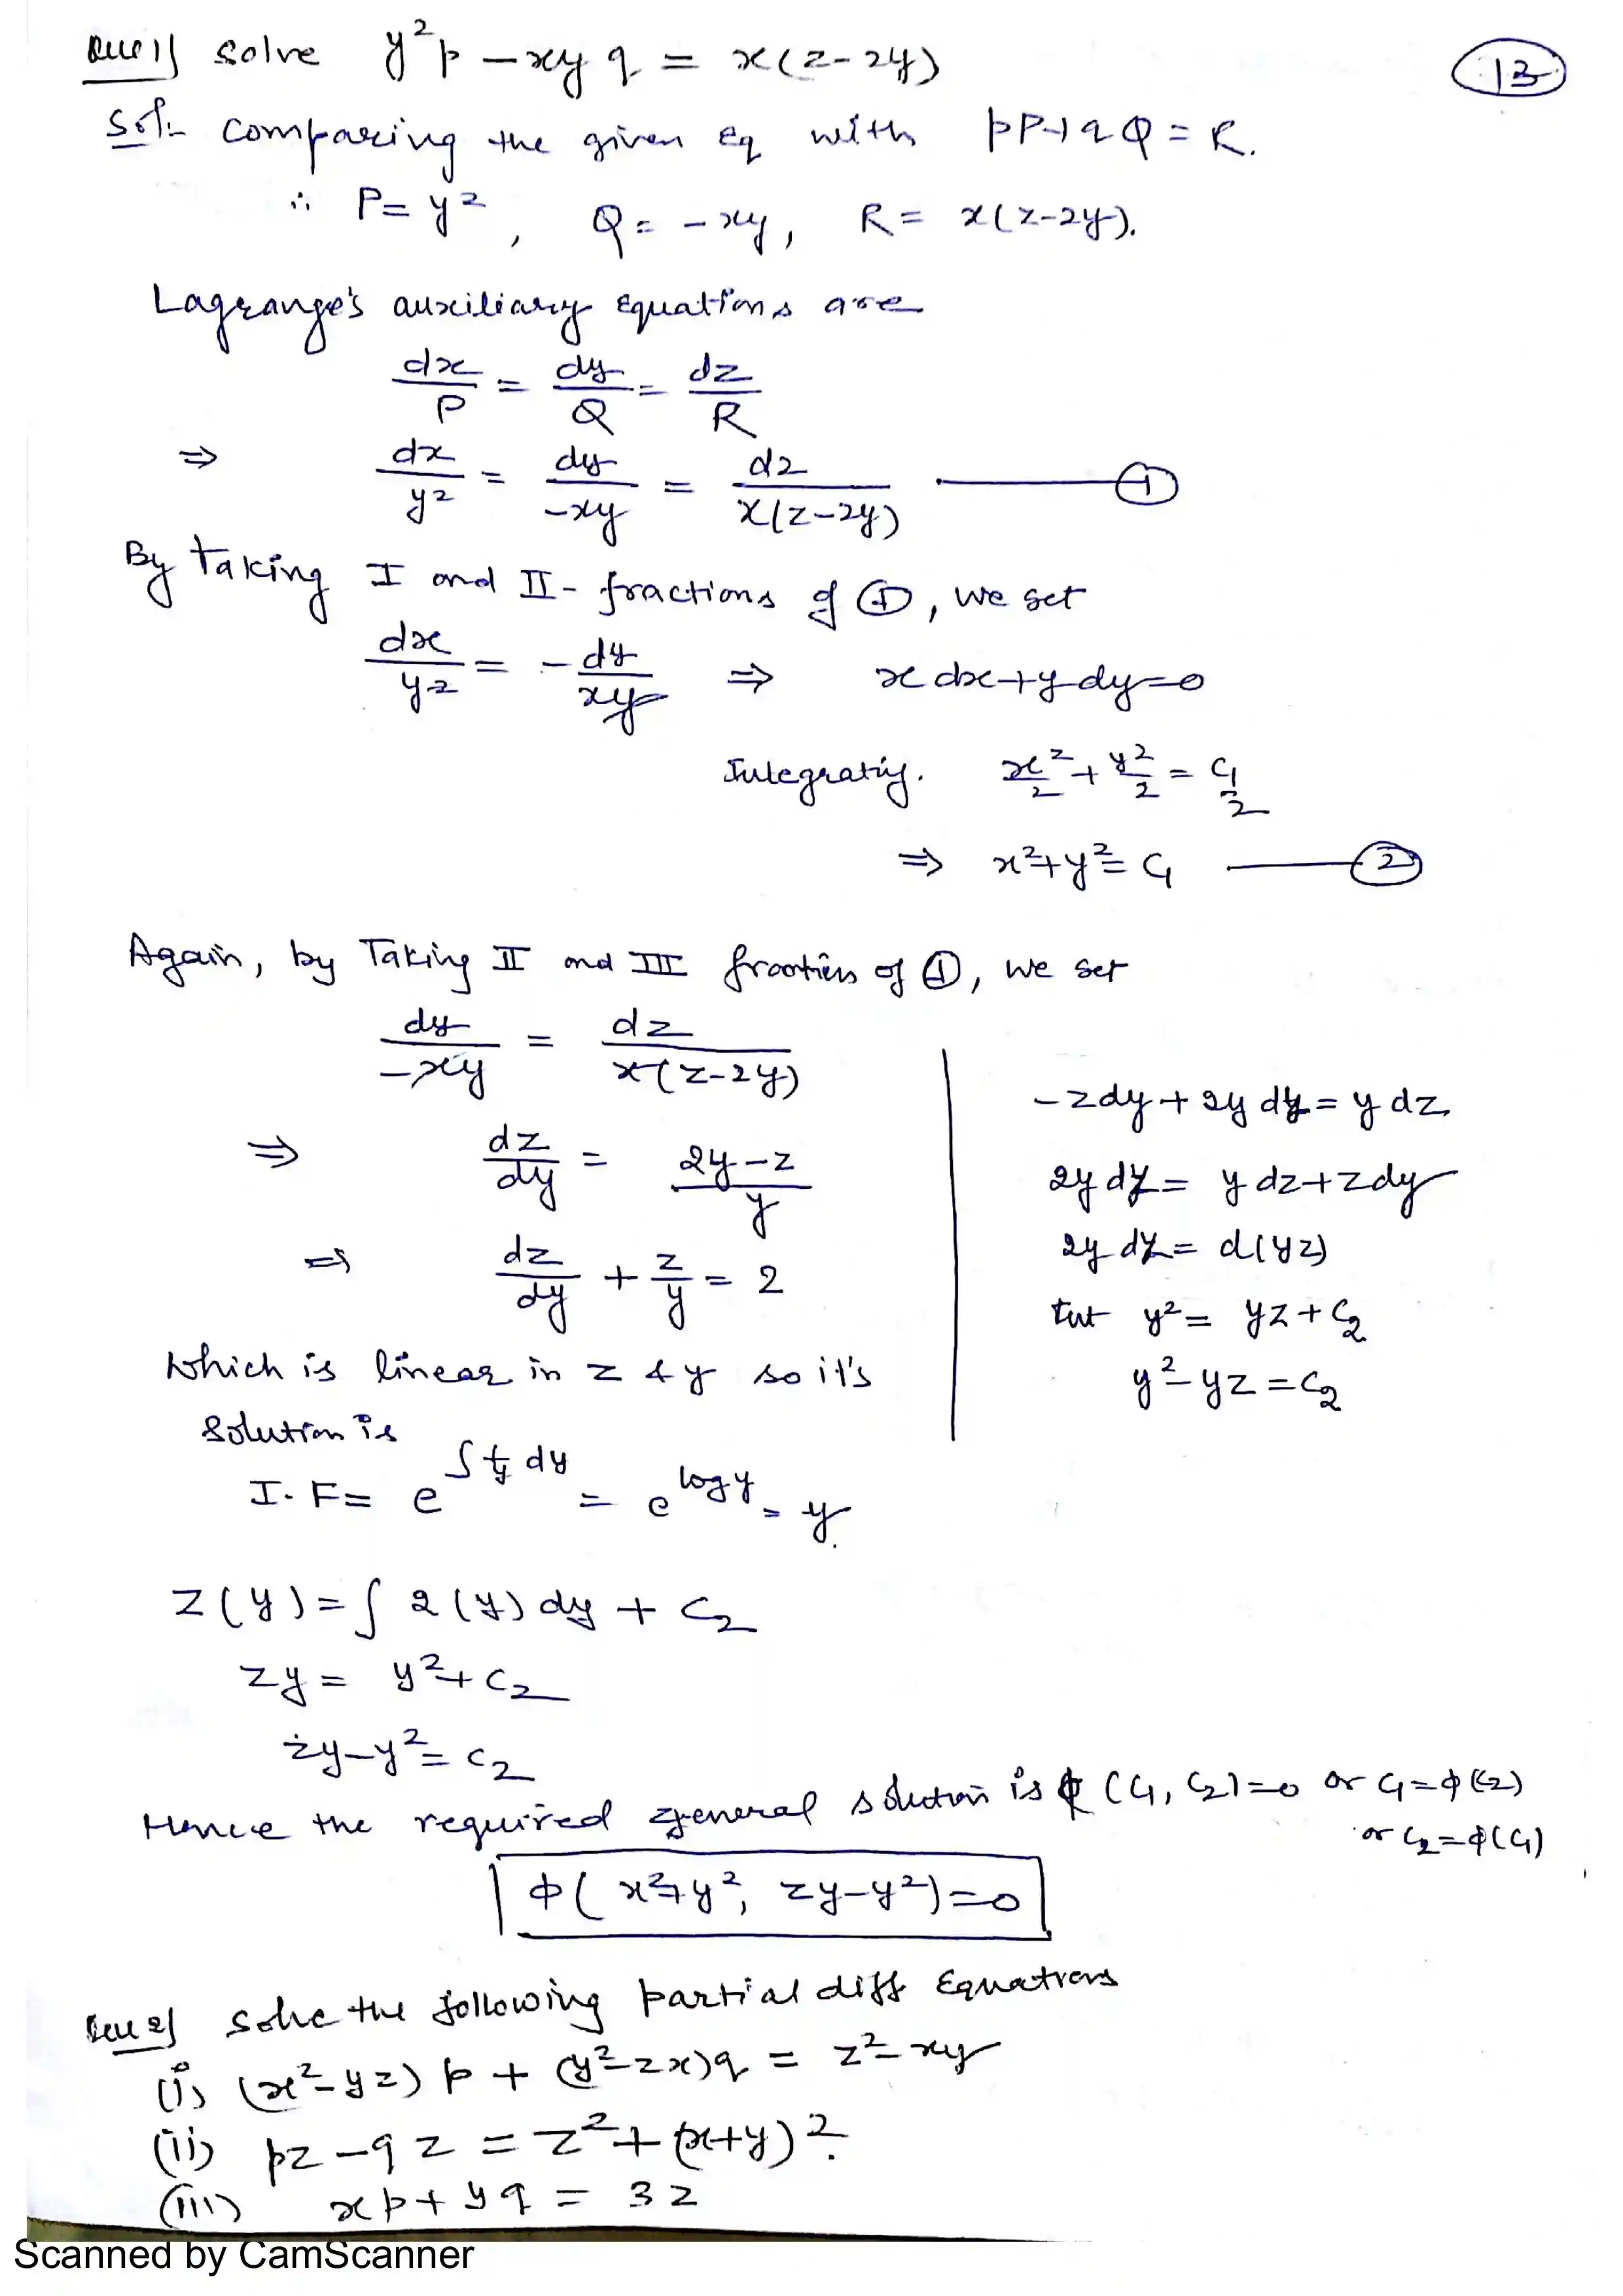 Que 1) solve y²p - xy q = x(z-2y)
13
Sol:- comparing the given eq with pP+qQ = R.
∴ P= y², Q= -xy, R= x(z-2y).
Lagrange's auxiliary equations are
dx/P = dy/Q = dz/R
⇒ dx/y² = dy/-xy = dz/x(z-2y) ——— ①
By taking I and II - fractions of ①, we get
dx/y² = -dy/xy ⇒ x dx + y dy = 0
Integratiy. x²/2 + y²/2 = C₁/2
⇒ x²+y² = C₁ ——— ②
Again, by Taking II and III fractions of ①, we get
dy/-xy = dz/x(z-2y)
⇒ dz/dy = 2y-z/y
⇒ dz/dy + z/y = 2
Which is linear in z & y so it's
solution is
I.F = e^∫1/y dy = e^log y = y.
z(y) = ∫ 2(y) dy + C₂
zy = y² + C₂
zy - y² = C₂
-zdy + 2y dy = y dz
2y dy = y dz + z dy
2y dy = d(yz)
Int y² = yz + C₂
y² - yz = C₂
Hence the required general solution is ϕ (C₁, C₂) = 0 or C₁ = ϕ(C₂)
or C₂ = ϕ(C₁)
ϕ( x²+y², zy-y²) = 0
Que 2) Solve the following partial diff Equations
(i) (x²-yz) p + (y²-zx)q = z²-xy
(ii) pz - qz = z² + (x+y)².
(iii) xp + yq = 3z
Scanned by CamScanner